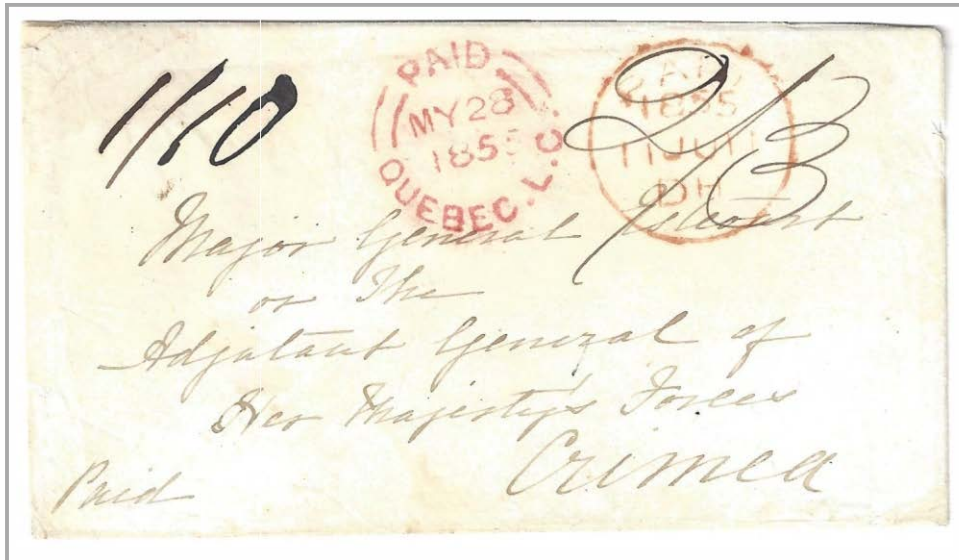 1/10
PAID
MY 28
1855
QUEBEC. L.C.
PAID
1855
11 JU 11
DH
2/3
Major General Estcourt
or The
Adjutant General of
Her Majesty's Forces
Crimea
Paid